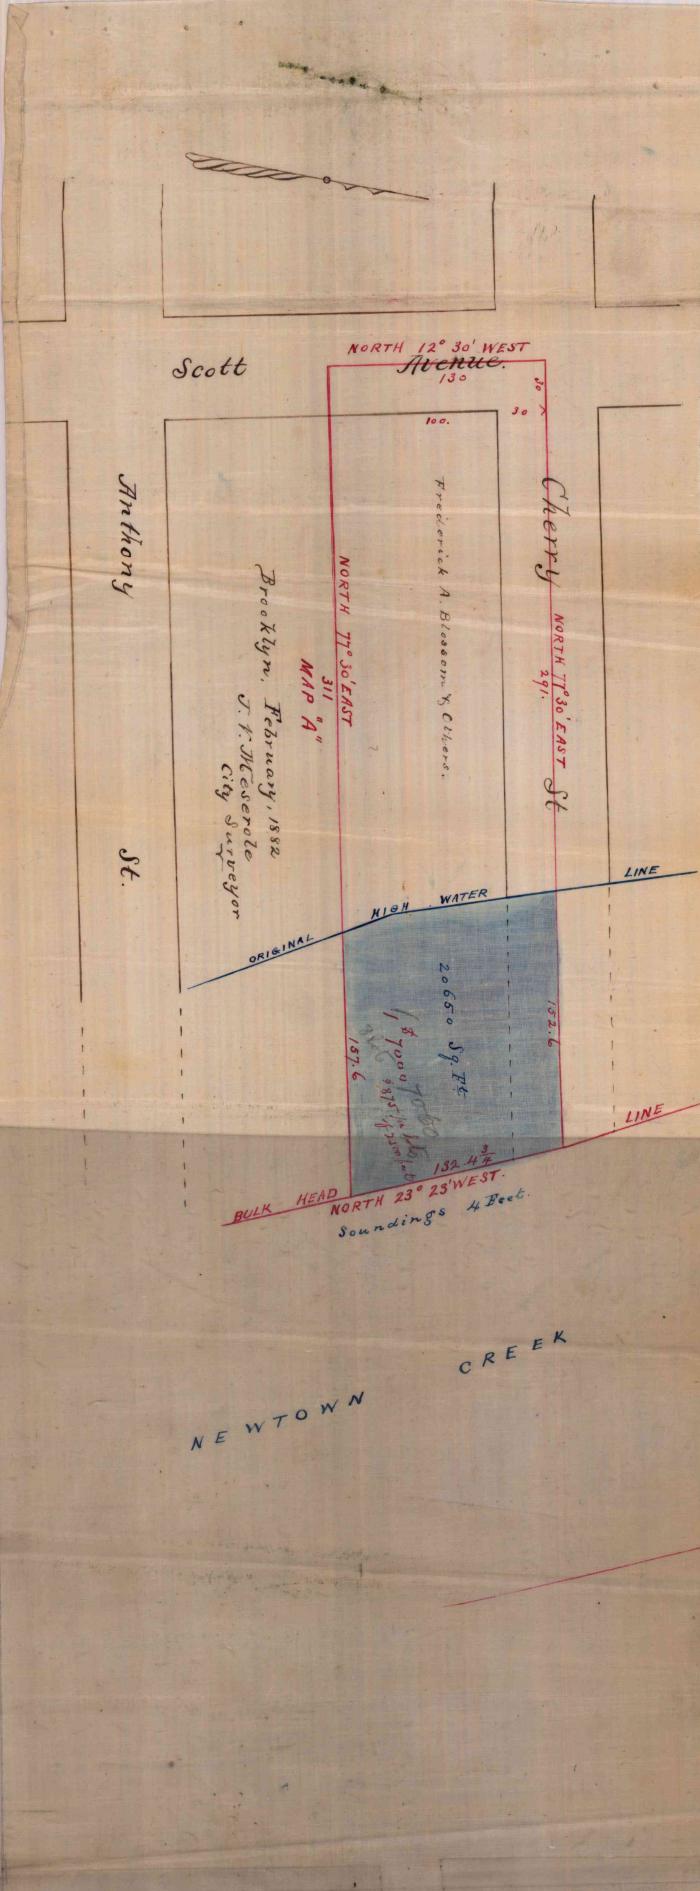 NORTH 12° 30' WEST
Scott Avenue.
130
30
30
100.
Anthony St.
Cherry St
NORTH 77° 30' EAST
291.
Frederick A. Blossom & Others.
NORTH 77° 30' EAST
311
MAP "A"
Brooklyn, February, 1882
J. V. Meserole
City Surveyor
ORIGINAL HIGH WATER LINE
20650 Sq. Ft
152.6
157.6
$7000
132.4 3/4
BULK HEAD LINE
NORTH 23° 23' WEST.
Soundings 4 Feet.
NEWTOWN CREEK